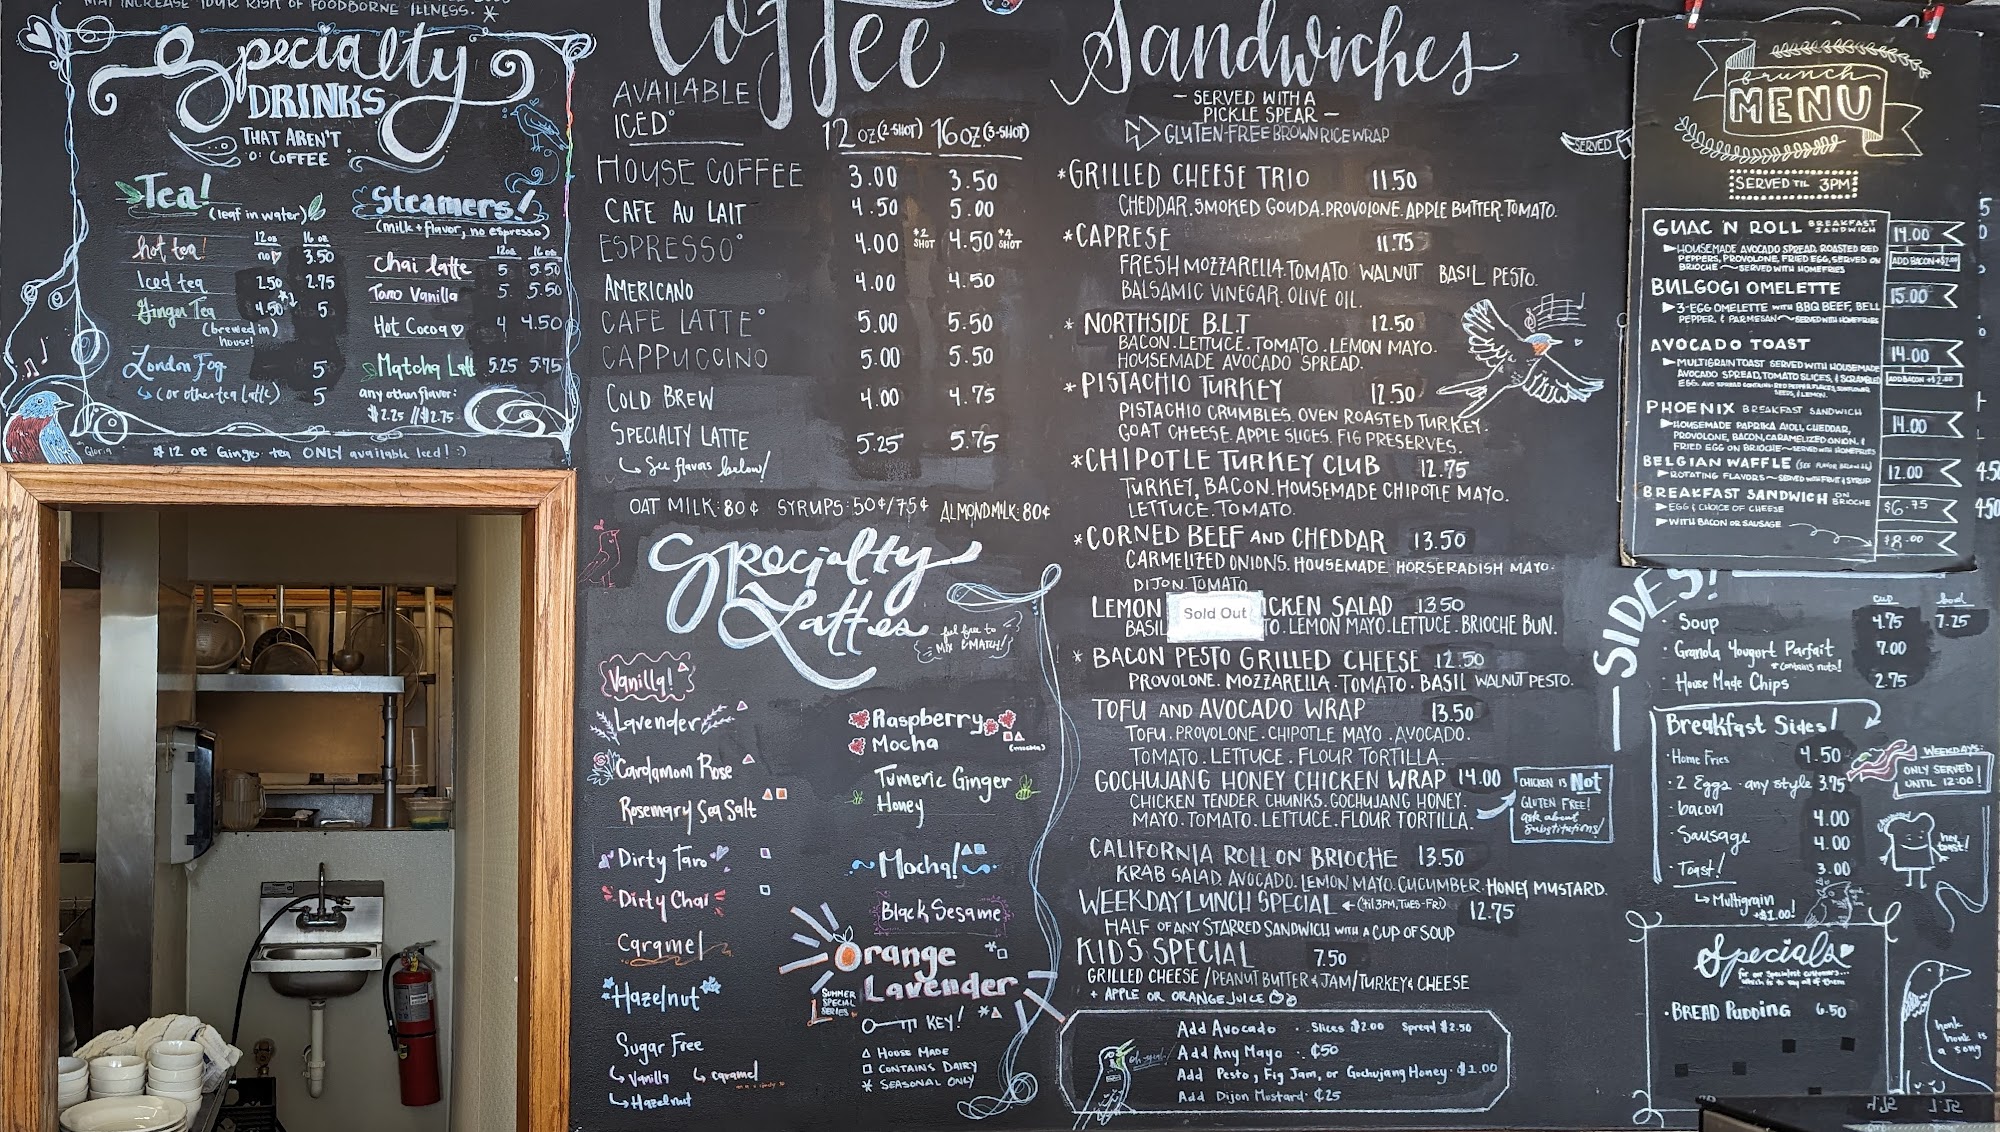 MAY INCREASE YOUR RISK OF FOODBORNE ILLNESS. *
Specialty
DRINKS
THAT AREN'T
O' COFFEE
Tea!
(leaf in water)
12oz 16 oz
hot tea! no 3.50
Iced tea 2.50 2.75
Ginger Tea 4.50 * 5
(brewed in
house!)
London Fog 5
(or other tea latte) 5
Steamers!
(milk + flavor, no espresso)
12oz 16 oz
Chai latte 5 5.50
Taro Vanilla 5 5.50
Hot Cocoa 4 4.50
Matcha Latt 5.25 5.75
any other flavor:
$2.25 // $2.75
Gloria
* 12 oz Ginger tea ONLY available Iced! :)
Coffee
AVAILABLE
ICED°
12 OZ (2-SHOT) 16 OZ (3-SHOT)
HOUSE COFFEE 3.00 3.50
CAFE AU LAIT 4.50 5.00
ESPRESSO° 4.00 +2 SHOT 4.50 +4 SHOT
AMERICANO 4.00 4.50
CAFE LATTE° 5.00 5.50
CAPPUCCINO 5.00 5.50
COLD BREW 4.00 4.75
SPECIALTY LATTE 5.25 5.75
See flavors below!
OAT MILK: 80¢ SYRUPS: 50¢/75¢ ALMONDMILK: 80¢
Specialty
Lattes
feel free to
MIX & MATCH!
Vanilla!
Lavender
Cardamom Rose
Rosemary Sea Salt
Dirty Taro
Dirty Chai
Caramel
Hazelnut
Sugar Free
Vanilla caramel
Hazelnut
Raspberry
Mocha
(mocha)
Tumeric Ginger
Honey
Mocha!
Black Sesame
Orange
Lavender
SUMMER
SPECIAL
SERIES
KEY!
△ HOUSE MADE
□ CONTAINS DAIRY
* SEASONAL ONLY
Sandwiches
— SERVED WITH A
PICKLE SPEAR —
GLUTEN-FREE BROWN RICE WRAP
*GRILLED CHEESE TRIO 11.50
CHEDDAR. SMOKED GOUDA. PROVOLONE. APPLE BUTTER. TOMATO.
*CAPRESE 11.75
FRESH MOZZARELLA. TOMATO. WALNUT BASIL PESTO.
BALSAMIC VINEGAR. OLIVE OIL.
* NORTHSIDE B.L.T 12.50
BACON. LETTUCE. TOMATO. LEMON MAYO.
HOUSEMADE AVOCADO SPREAD.
* PISTACHIO TURKEY 12.50
PISTACHIO CRUMBLES. OVEN ROASTED TURKEY.
GOAT CHEESE. APPLE SLICES. FIG PRESERVES.
*CHIPOTLE TURKEY CLUB 12.75
TURKEY, BACON. HOUSEMADE CHIPOTLE MAYO.
LETTUCE. TOMATO.
*CORNED BEEF AND CHEDDAR 13.50
CARMELIZED ONIONS. HOUSEMADE HORSERADISH MAYO.
DIJON. TOMATO
LEMON Sold Out ICKEN SALAD 13.50
BASIL TO. LEMON MAYO. LETTUCE. BRIOCHE BUN.
* BACON PESTO GRILLED CHEESE 12.50
PROVOLONE. MOZZARELLA. TOMATO. BASIL WALNUT PESTO.
TOFU AND AVOCADO WRAP 13.50
TOFU. PROVOLONE. CHIPOTLE MAYO. AVOCADO.
TOMATO. LETTUCE. FLOUR TORTILLA.
GOCHUJANG HONEY CHICKEN WRAP 14.00
CHICKEN TENDER CHUNKS. GOCHUJANG HONEY.
MAYO. TOMATO. LETTUCE. FLOUR TORTILLA.
CHICKEN IS Not
GLUTEN FREE!
ask about
substitutions!
CALIFORNIA ROLL ON BRIOCHE 13.50
KRAB SALAD. AVOCADO. LEMON MAYO. CUCUMBER. HONEY MUSTARD.
WEEKDAY LUNCH SPECIAL ← (til 3PM, TUES-FRI) 12.75
HALF OF ANY STARRED SANDWICH WITH A CUP OF SOUP
KIDS SPECIAL 7.50
GRILLED CHEESE / PEANUT BUTTER & JAM / TURKEY & CHEESE
+ APPLE OR ORANGE JUICE
Add Avocado . Slices $2.00 Spread $2.50
Add Any Mayo . ¢50
Add Pesto, Fig Jam, or Gochujang Honey. $1.00
Add Dijon Mustard. ¢25
SERVED
brunch
MENU
SERVED TIL 3PM
GUAC N ROLL BREAKFAST SANDWICH 14.00
HOUSEMADE AVOCADO SPREAD, ROASTED RED
PEPPERS, PROVOLONE, FRIED EGG, SERVED ON
BRIOCHE ~ SERVED WITH HOMEFRIES
ADD BACON +$2.00
BULGOGI OMELETTE 15.00
3-EGG OMELETTE WITH BBQ BEEF, BELL
PEPPER, & PARMESAN ~ SERVED WITH HOMEFRIES
AVOCADO TOAST 14.00
MULTIGRAIN TOAST SERVED WITH HOUSEMADE
AVOCADO SPREAD, TOMATO SLICES, & SCRAMBLED
EGG. AVO SPREAD CONTAINS: RED PEPPER FLAKES, SUNFLOWER
SEEDS, & LEMON.
ADD BACON +$2.00
PHOENIX BREAKFAST SANDWICH 14.00
HOUSEMADE PAPRIKA AIOLI, CHEDDAR,
PROVOLONE, BACON, CARAMELIZED ONION, &
FRIED EGG ON BRIOCHE ~ SERVED WITH HOMEFRIES
BELGIAN WAFFLE (SEE FLAVOR BELOW) 12.00
ROTATING FLAVORS ~ SERVED WITH FRUIT & SYRUP
BREAKFAST SANDWICH ON BRIOCHE $6.75
EGG & CHOICE OF CHEESE
WITH BACON OR SAUSAGE $8.00
4.50
4.50
SIDES!
cup bowl
· Soup 4.75 7.25
· Granola Yougort Parfait 7.00
*contains nuts!
· House Made Chips 2.75
Breakfast Sides!
· Home Fries 4.50
· 2 Eggs - any style 3.75
· bacon 4.00
· Sausage 4.00
· Toast! 3.00
Multigrain
+$1.00!
WEEKDAYS:
ONLY SERVED
UNTIL 12:00!
hey
toast!
Specials
for our specialest customers...
which is to say all of them
· BREAD PUDDING 6.50
honk
honk is
a song